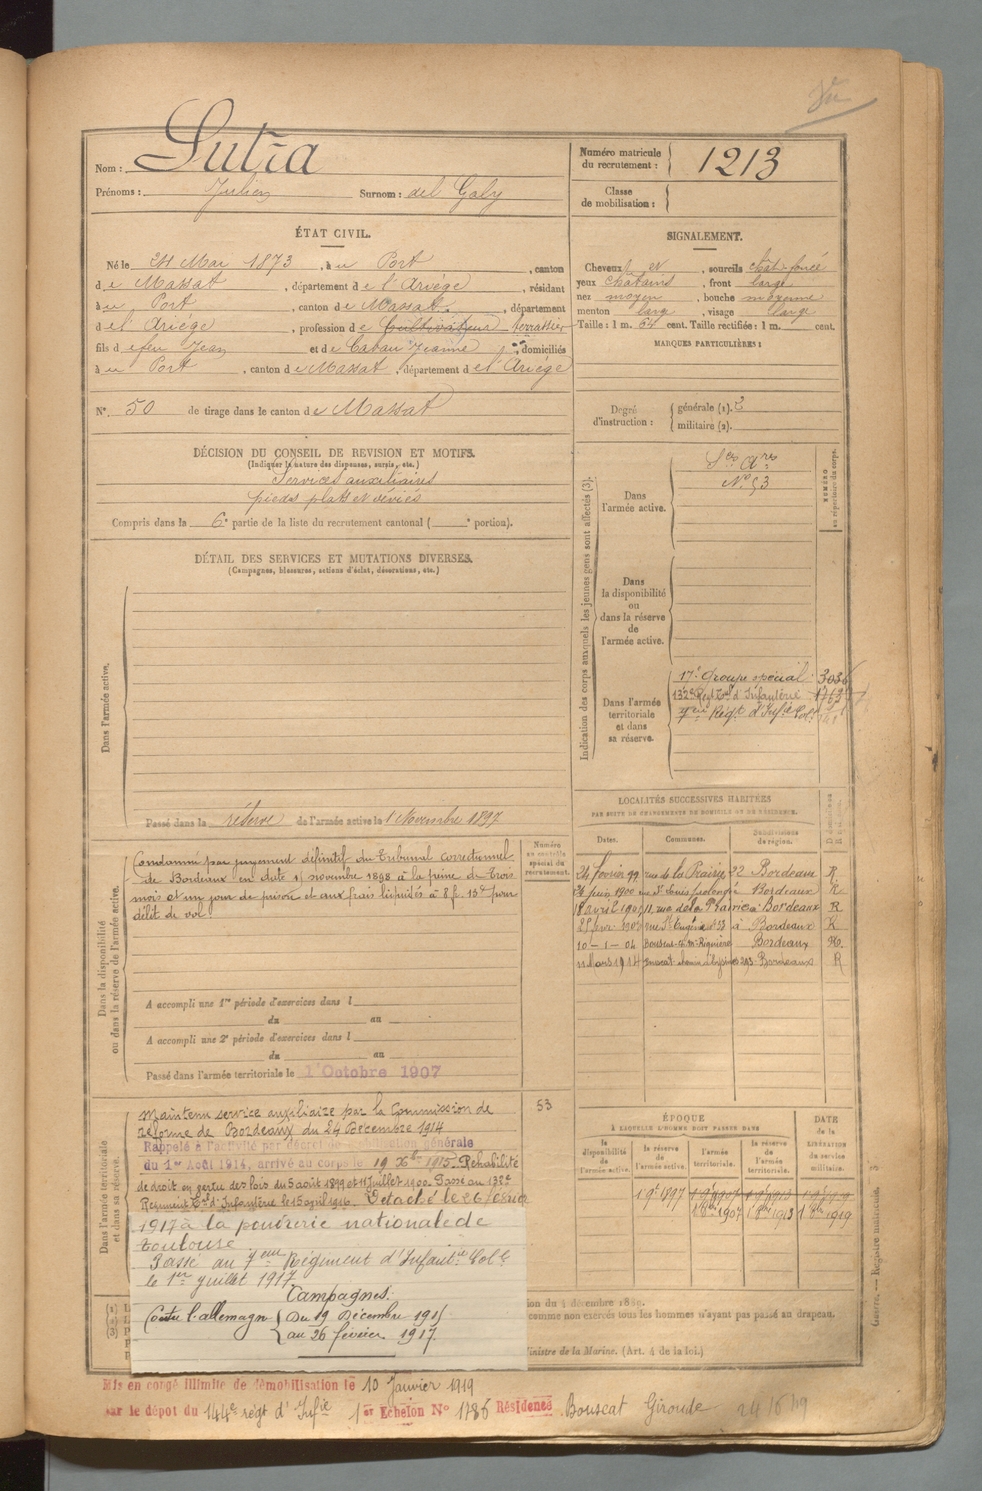 Vu
Nom : Sutra
Prénoms : Julien Surnom : del Galy
Numéro matricule du recrutement : 1213
Classe de mobilisation :
ÉTAT CIVIL.
Né le 24 Mai 1873, à u Port, canton
d e Massat, département de l'Ariége, résidant
à u Port, canton de Massat, département
d el' Ariége, profession de Cultivateur terrassier
fils d efeu Jean et de Caban Jeanne, domiciliés
à u Port, canton d e Massat, département d el'Ariége
N° 50 de tirage dans le canton d e Massat
SIGNALEMENT.
Cheveux et, sourcils chât-foncé
yeux châtains, front large
nez moyen, bouche moyenne
menton large, visage large
Taille : 1 m. 64 cent. Taille rectifiée : 1 m. cent.
MARQUES PARTICULIÈRES :
Degré d'instruction : générale (1). 2
militaire (2).
DÉCISION DU CONSEIL DE REVISION ET MOTIFS.
(Indiquer la nature des dispenses, sursis, etc.)
Services auxiliaires
pieds plats et déviés
Compris dans la 6e partie de la liste du recrutement cantonal ( e portion).
DÉTAIL DES SERVICES ET MUTATIONS DIVERSES.
(Campagnes, blessures, actions d'éclat, décorations, etc.)
Dans l'armée active.
Passé dans la réserve de l'armée active le 1 Novembre 1897
Indication des corps auxquels les jeunes gens sont affectés (3).
NUMÉRO au répertoire du corps.
Dans l'armée active.
Ses Ares
No 53
Dans la disponibilité ou dans la réserve de l'armée active.
Dans l'armée territoriale et dans sa réserve.
17e Groupe spécial
132e Regt Tal d'Infanterie 1763
7eme Régt d'Infie Col.
LOCALITÉS SUCCESSIVES HABITÉES
PAR SUITE DE CHANGEMENTS DE DOMICILE OU DE RÉSIDENCE.
Dates. Communes. Subdivisions de région.
24 février 99 rue de la Prairie, 22 Bordeaux R
26 juin 1900 Bordeaux R
11, rue de la Prairie à Bordeaux R
rue St Eugène à Bordeaux R
10-1-04 Bordeaux R
11 Mars 1914 Bouscat chemin Bordeaux R
Dans la disponibilité ou dans la réserve de l'armée active.
Numéro au contrôle spécial du recrutement.
Condamné par jugement définitif du Tribunal correctionnel
de Bordeaux en date novembre 1898 à la peine de Trois
mois et un jour de prison et aux frais liquidés à 8 f. 13c pour
délit de vol
A accompli une 1re période d'exercices dans l
du au
A accompli une 2e période d'exercices dans l
du au
Passé dans l'armée territoriale le 1er Octobre 1907
Dans l'armée territoriale et dans sa réserve.
53
Maintenu service auxiliaire par la Commission de
réforme de Bordeaux du 24 Décembre 1914
Rappelé à l'activité par décret de mobilisation générale
du 1er Août 1914, arrivé au corps le 19 Xbre 1915. Réhabilité
de droit en vertu des lois du 5 août 1899 et 11 juillet 1900. Passé au 132e
Régiment Tal d'Infanterie le 15 avril 1916. Détaché le 26 février
1917 à la poudrerie nationale de
toulouse
Passé au 7eme Régiment d'Infantie Colle
le 1er juillet 1917
Campagnes.
Contre l'allemagne Du 19 Décembre 1915
au 26 février 1917.
ÉPOQUE
À LAQUELLE L'HOMME DOIT PASSER DANS
la disponibilité de l'armée active. la réserve de l'armée active. l'armée territoriale. la réserve de l'armée territoriale.
DATE de la LIBÉRATION du service militaire.
1 9bre 1897
1 8bre 1907 1 8bre 1913 1 8bre 1919
comme non exercés tous les hommes n'ayant pas passé au drapeau.
Ministre de la Marine. (Art. 4 de la loi.)
Guerre. — Registre matricule. 3
Mis en congé illimité de démobilisation le 10 Janvier 1919
par le dépôt du 144e régt d'Infie 1er Echelon No 1786 Résidence Bouscat Gironde